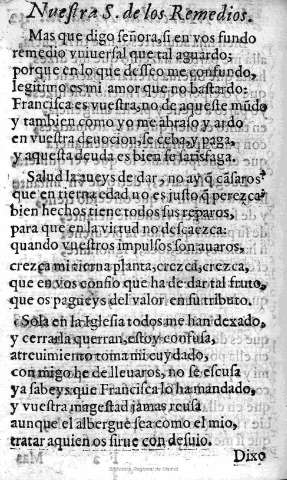 Nuestra S. de los Remedios.
Mas que digo señora, si en vos fundo
remedio vniuersal que tal aguardo;
porque en lo que desseo me confundo,
legitimo es mi amor que no bastardo:
Francisca es vuestra, no de aqueste mũdo
y tambien como yo me abraso y ardo
en vuestra deuocion, se ceba, y paga,
y aquesta deuda es bien se satisfaga.
Salud la aueys de dar, no ay q̃ cãsaros
que en tierna edad no es justo q̃ perezca
bien hechos tiene todos sus reparos,
para que en la virtud no descaezca:
quando vuestros impulsos son auaros,
crezca mi tierna planta, crezca, crezca,
que en vos confio que ha de dar tal fruto,
que os pagueys del valor en su tributo.
Sola en la Iglesia todos me han dexado,
y cerrarla querran, estoy confusa,
atreuimiento toma mi cuydado,
conmigo he de lleuaros, no se escusa
ya sabeys que Francisca lo ha mandado,
y vuestra magestad jamas reusa
aunque el albergue sea como el mio,
tratar a quien os sirue con desuio.
Dixo
Biblioteca Regional de Madrid